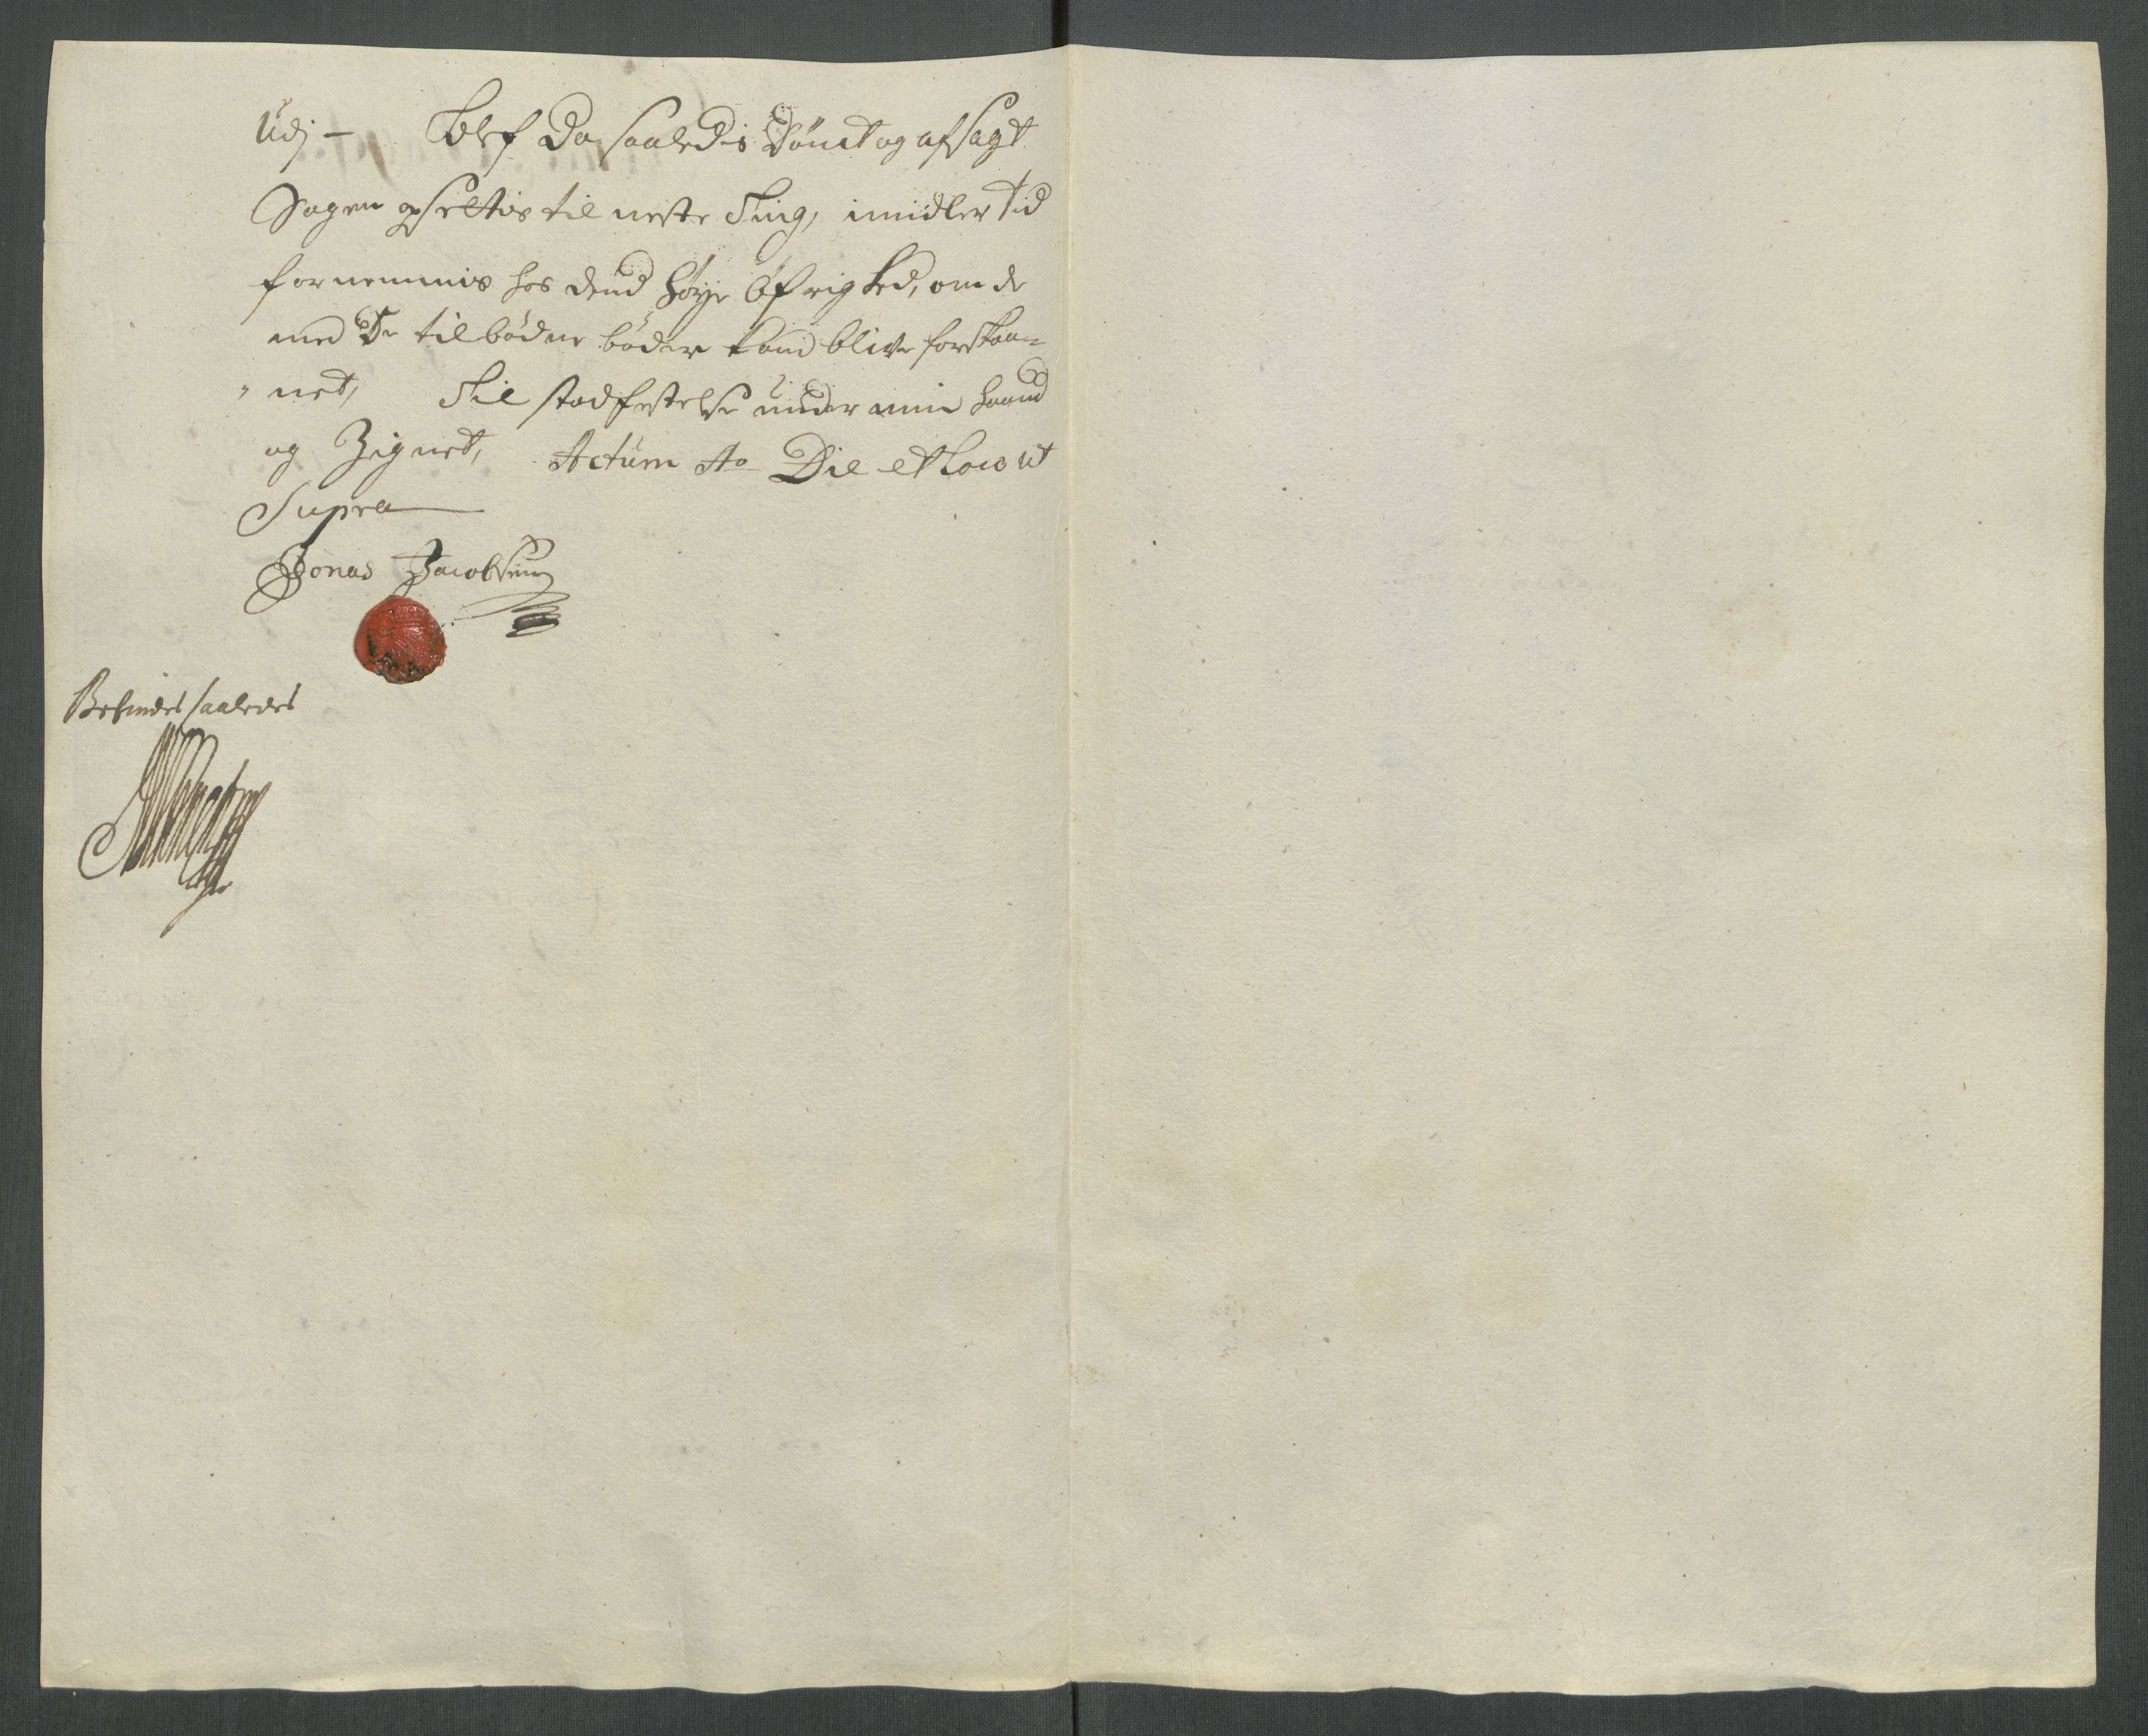 Udj – Blef da saaledis dömt og afsagt
Sagen opsettis til neste Ting, imidler tid
fornemmis hos dend høye Öfrighed, om de
med de tilbödne böder kand blive forskaa=
"net, Til stadfestelse under min haand
og Zignet, Actum Ao Die et Loco ut
Supra
Jonas Jacobsen
Befindes saaledes